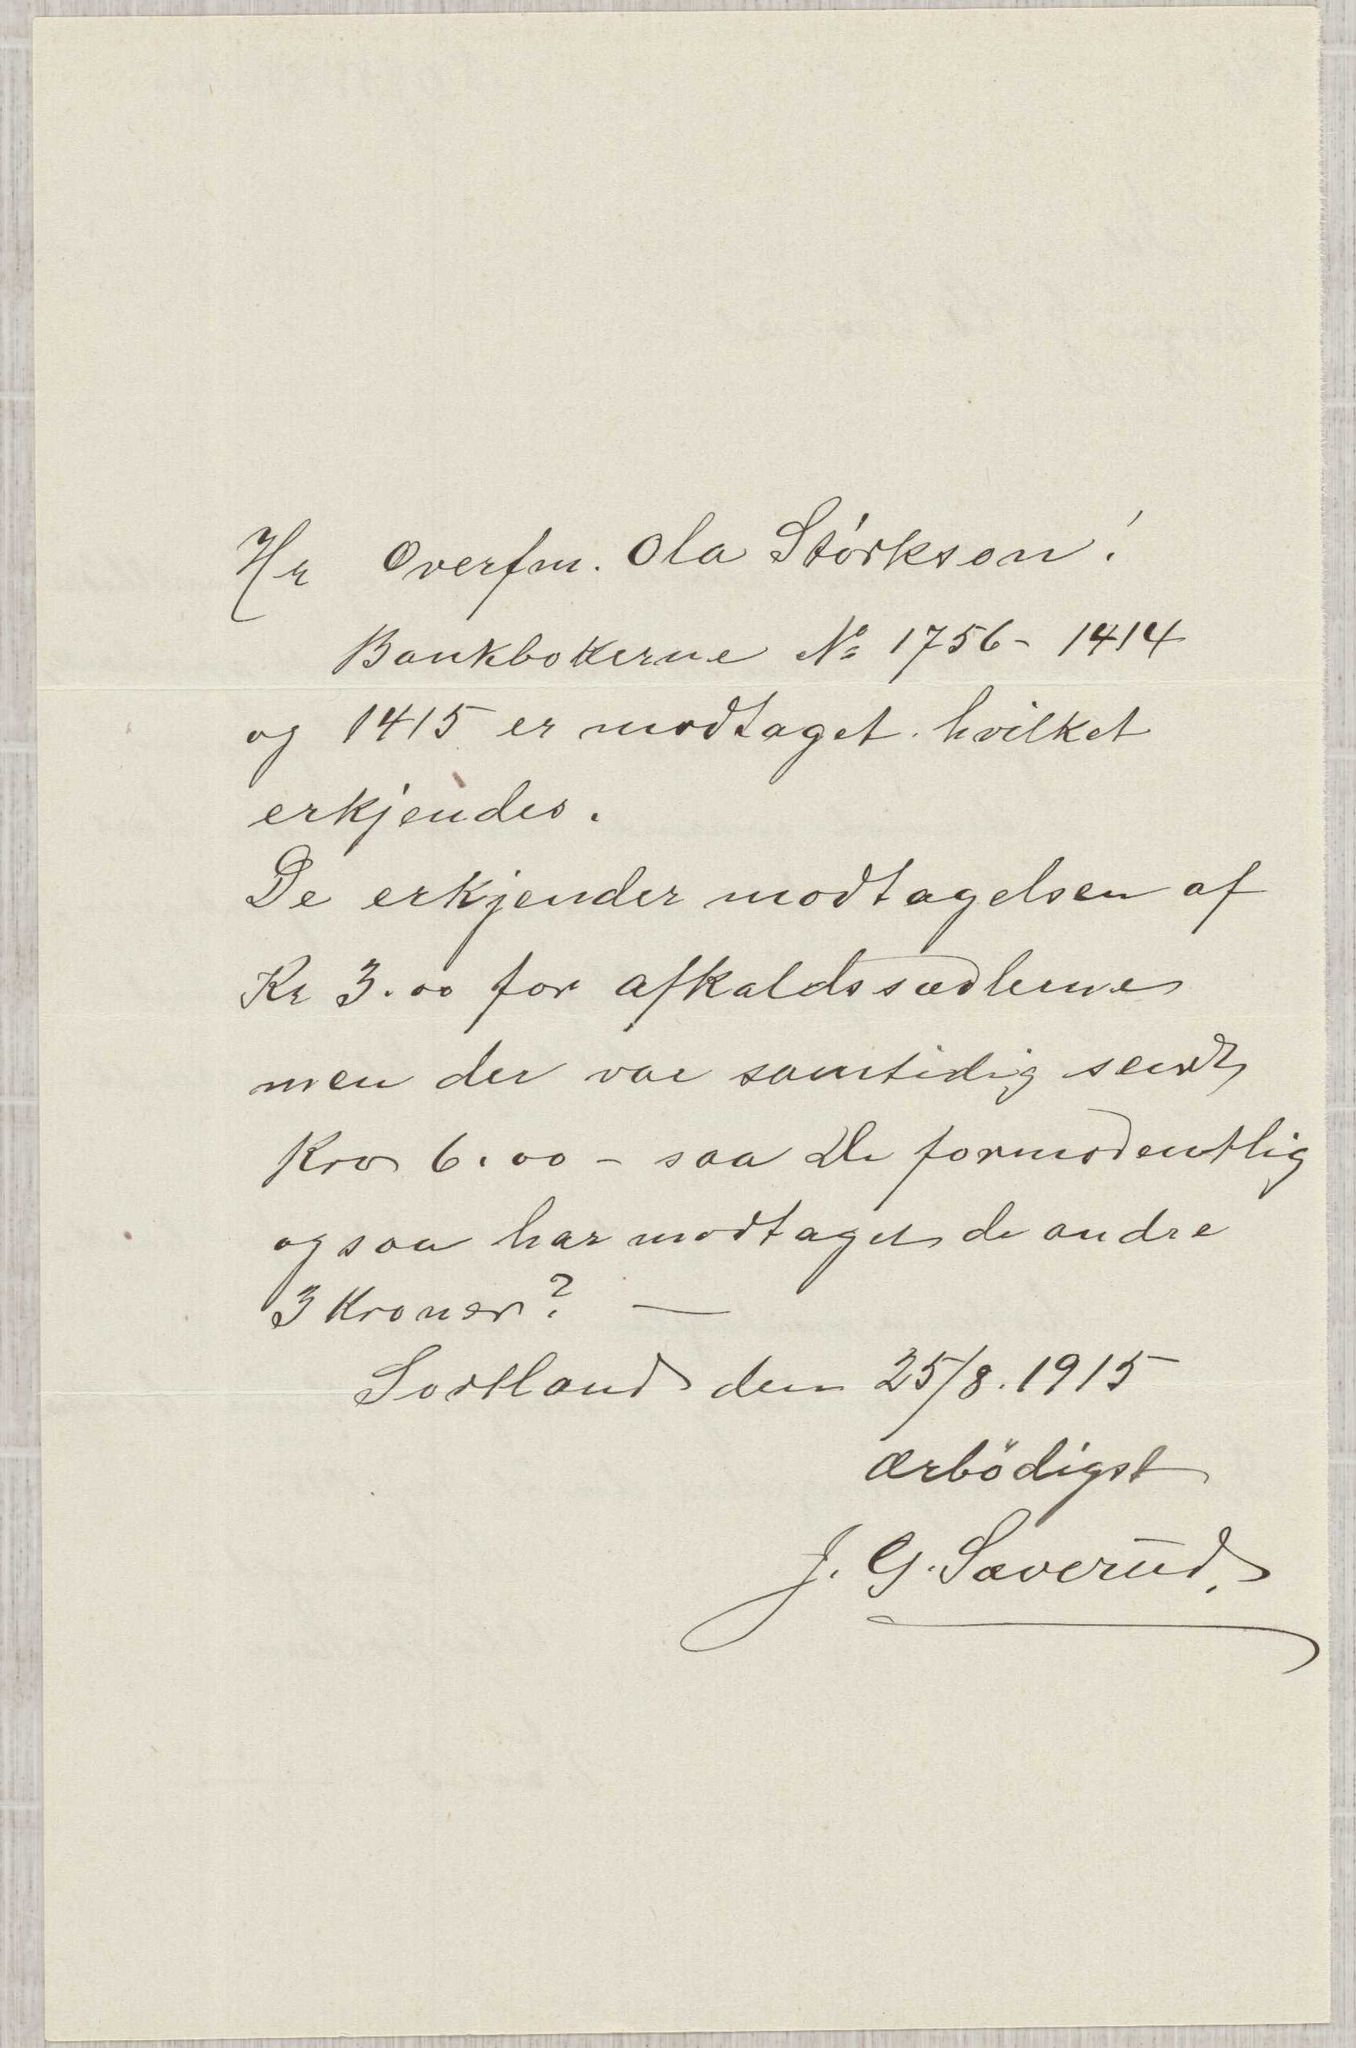 Hr Overfm. Ola Störksen!
Bankbokerne No 1756 - 1414
og 1415 er modtaget. hvilket
erkjendes.
De erkjender modtagelsen af
Kr 3.00 for afkaldssædlerne
men der var samtidig sendt
Kro 6.00 - saa De formodentlig
ogsaa har modtaget de andre
3 Kroner? —
Sortland den 25/8. 1915
ærbödigst
J. G. Sæverud.